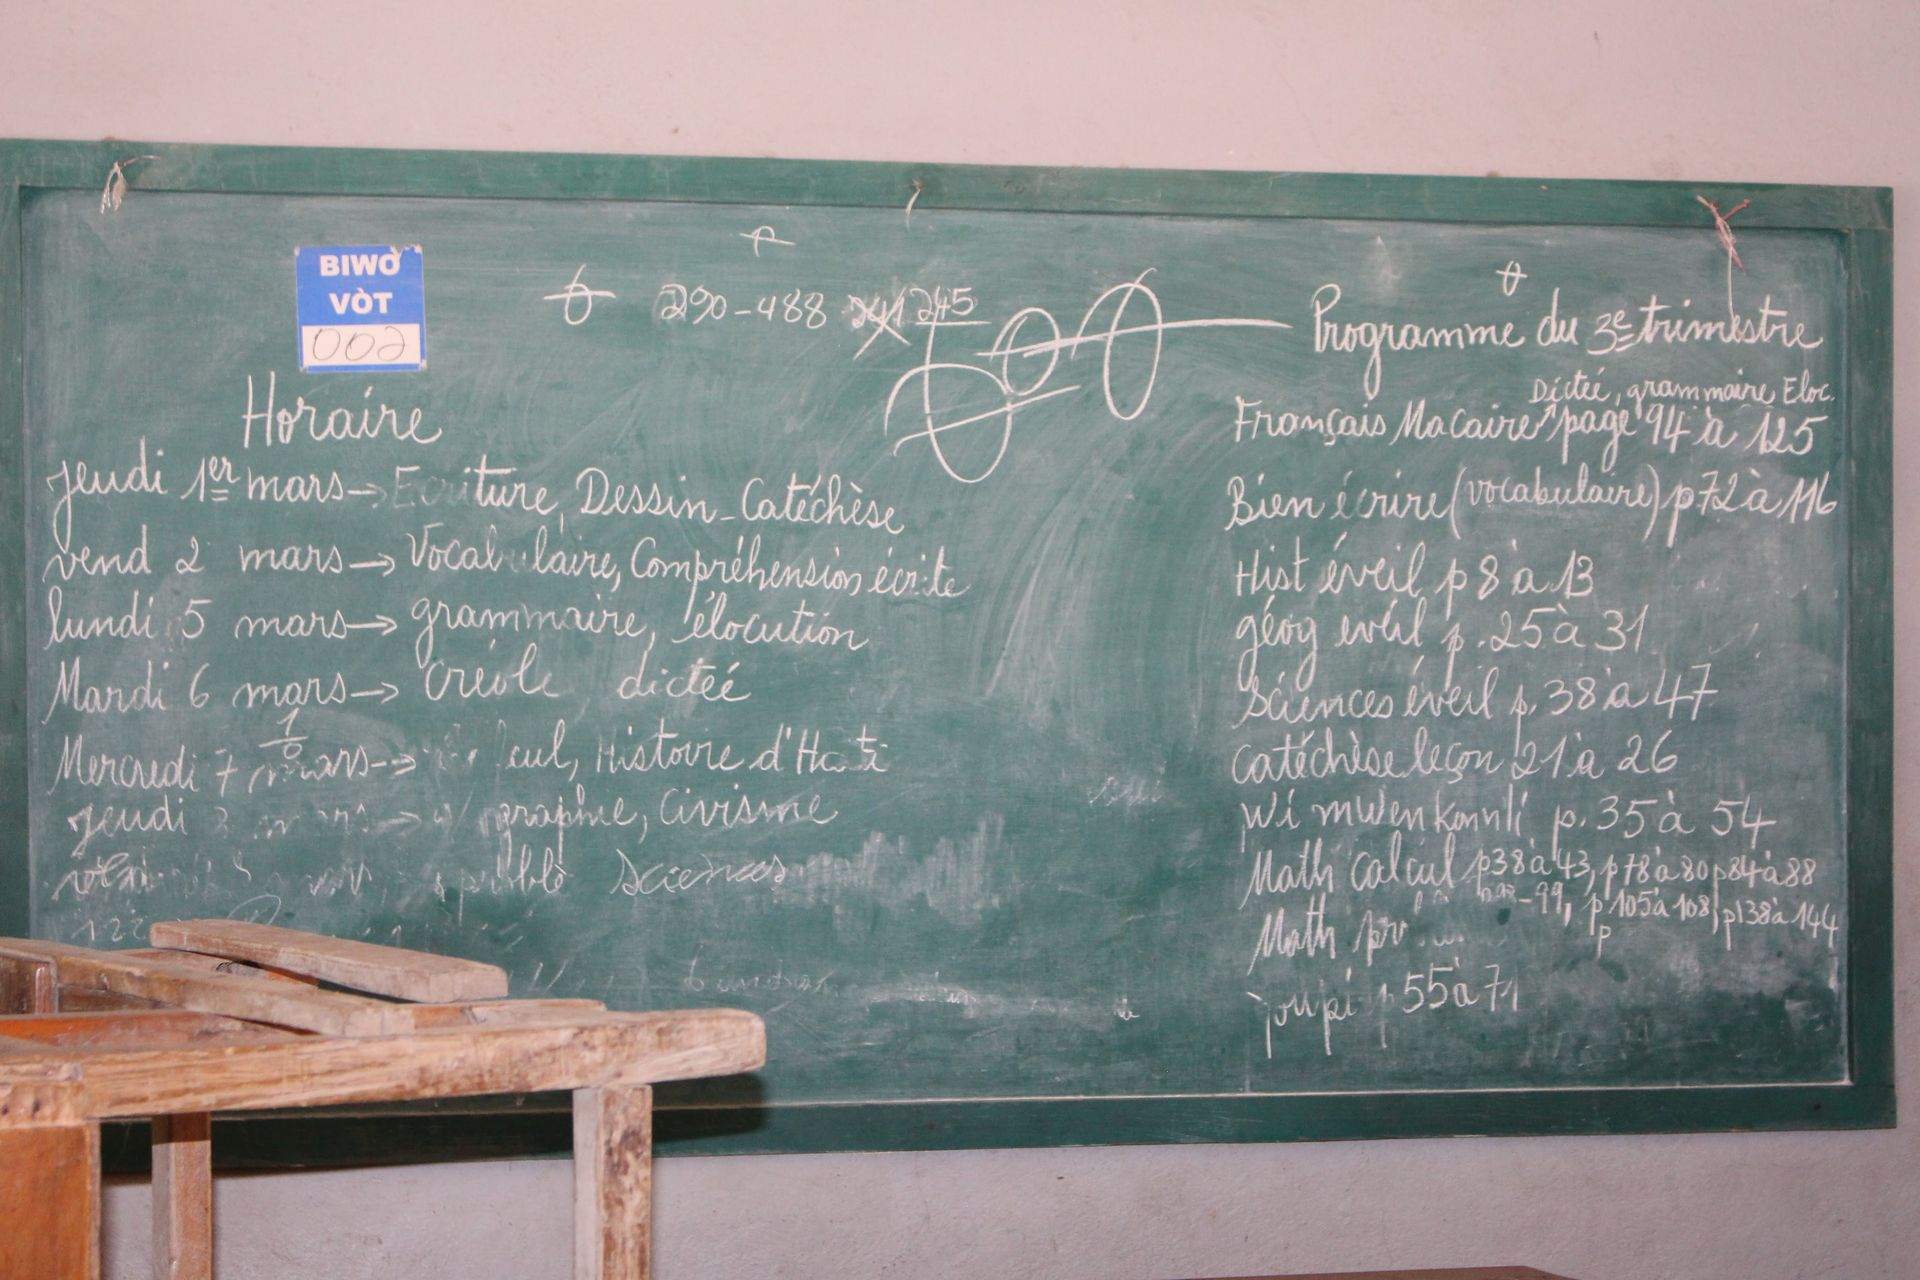 BIWO
VÒT
002
290-488 245
Horaire
jeudi 1er mars → Ecriture, Dessin - Catéchèse
vend 2 mars → Vocabulaire, Compréhension écrite
lundi 5 mars → grammaire, élocution
Mardi 6 mars → Créole dictée
Mercredi 7 mars → Histoire d'Haïti
jeudi mars → graphie, Civisme
Sciences
Programme du 3e trimestre
Dictée, grammaire, Eloc.
Français Macaire page 94 à 125
Bien écrire (vocabulaire) p72 à 116
Hist éveil p 8 à 13
géog eveil p. 25 à 31
Sciences éveil p. 38 à 47
Catéchèse leçon 21 à 26
Wi mwen konn li p. 35 à 54
Math Calcul p38 à 43, p78 à 80 p84 à 88
-99, p105 à 108, p138 à 144
Math
55 à 71